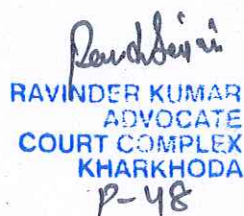 RAVINDER KUMAR
ADVOCATE
COURT COMPLEX
KHARKHODA
P-48